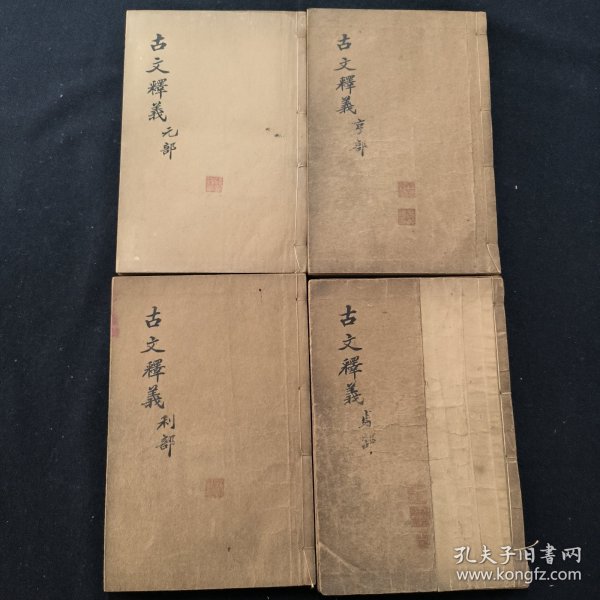 古文釋義 元部
古文釋義 亨部
古文釋義 利部
古文釋義 部
孔夫子旧书网
www.kongfz.com